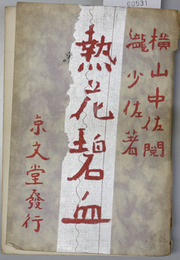 横山中佐閲
瀧少佐著
熱花碧血
京文堂發行